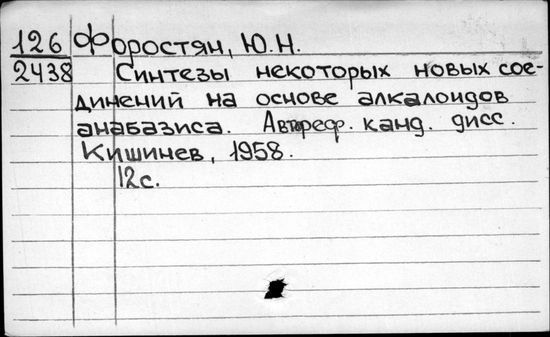 126 Форостян, Ю.Н.
2438 Синтезы некоторых новых сое-
динений на основе алкалоидов
анабазиса. Автореф. канд. дисс.
Кишинев, 1958.
12с.